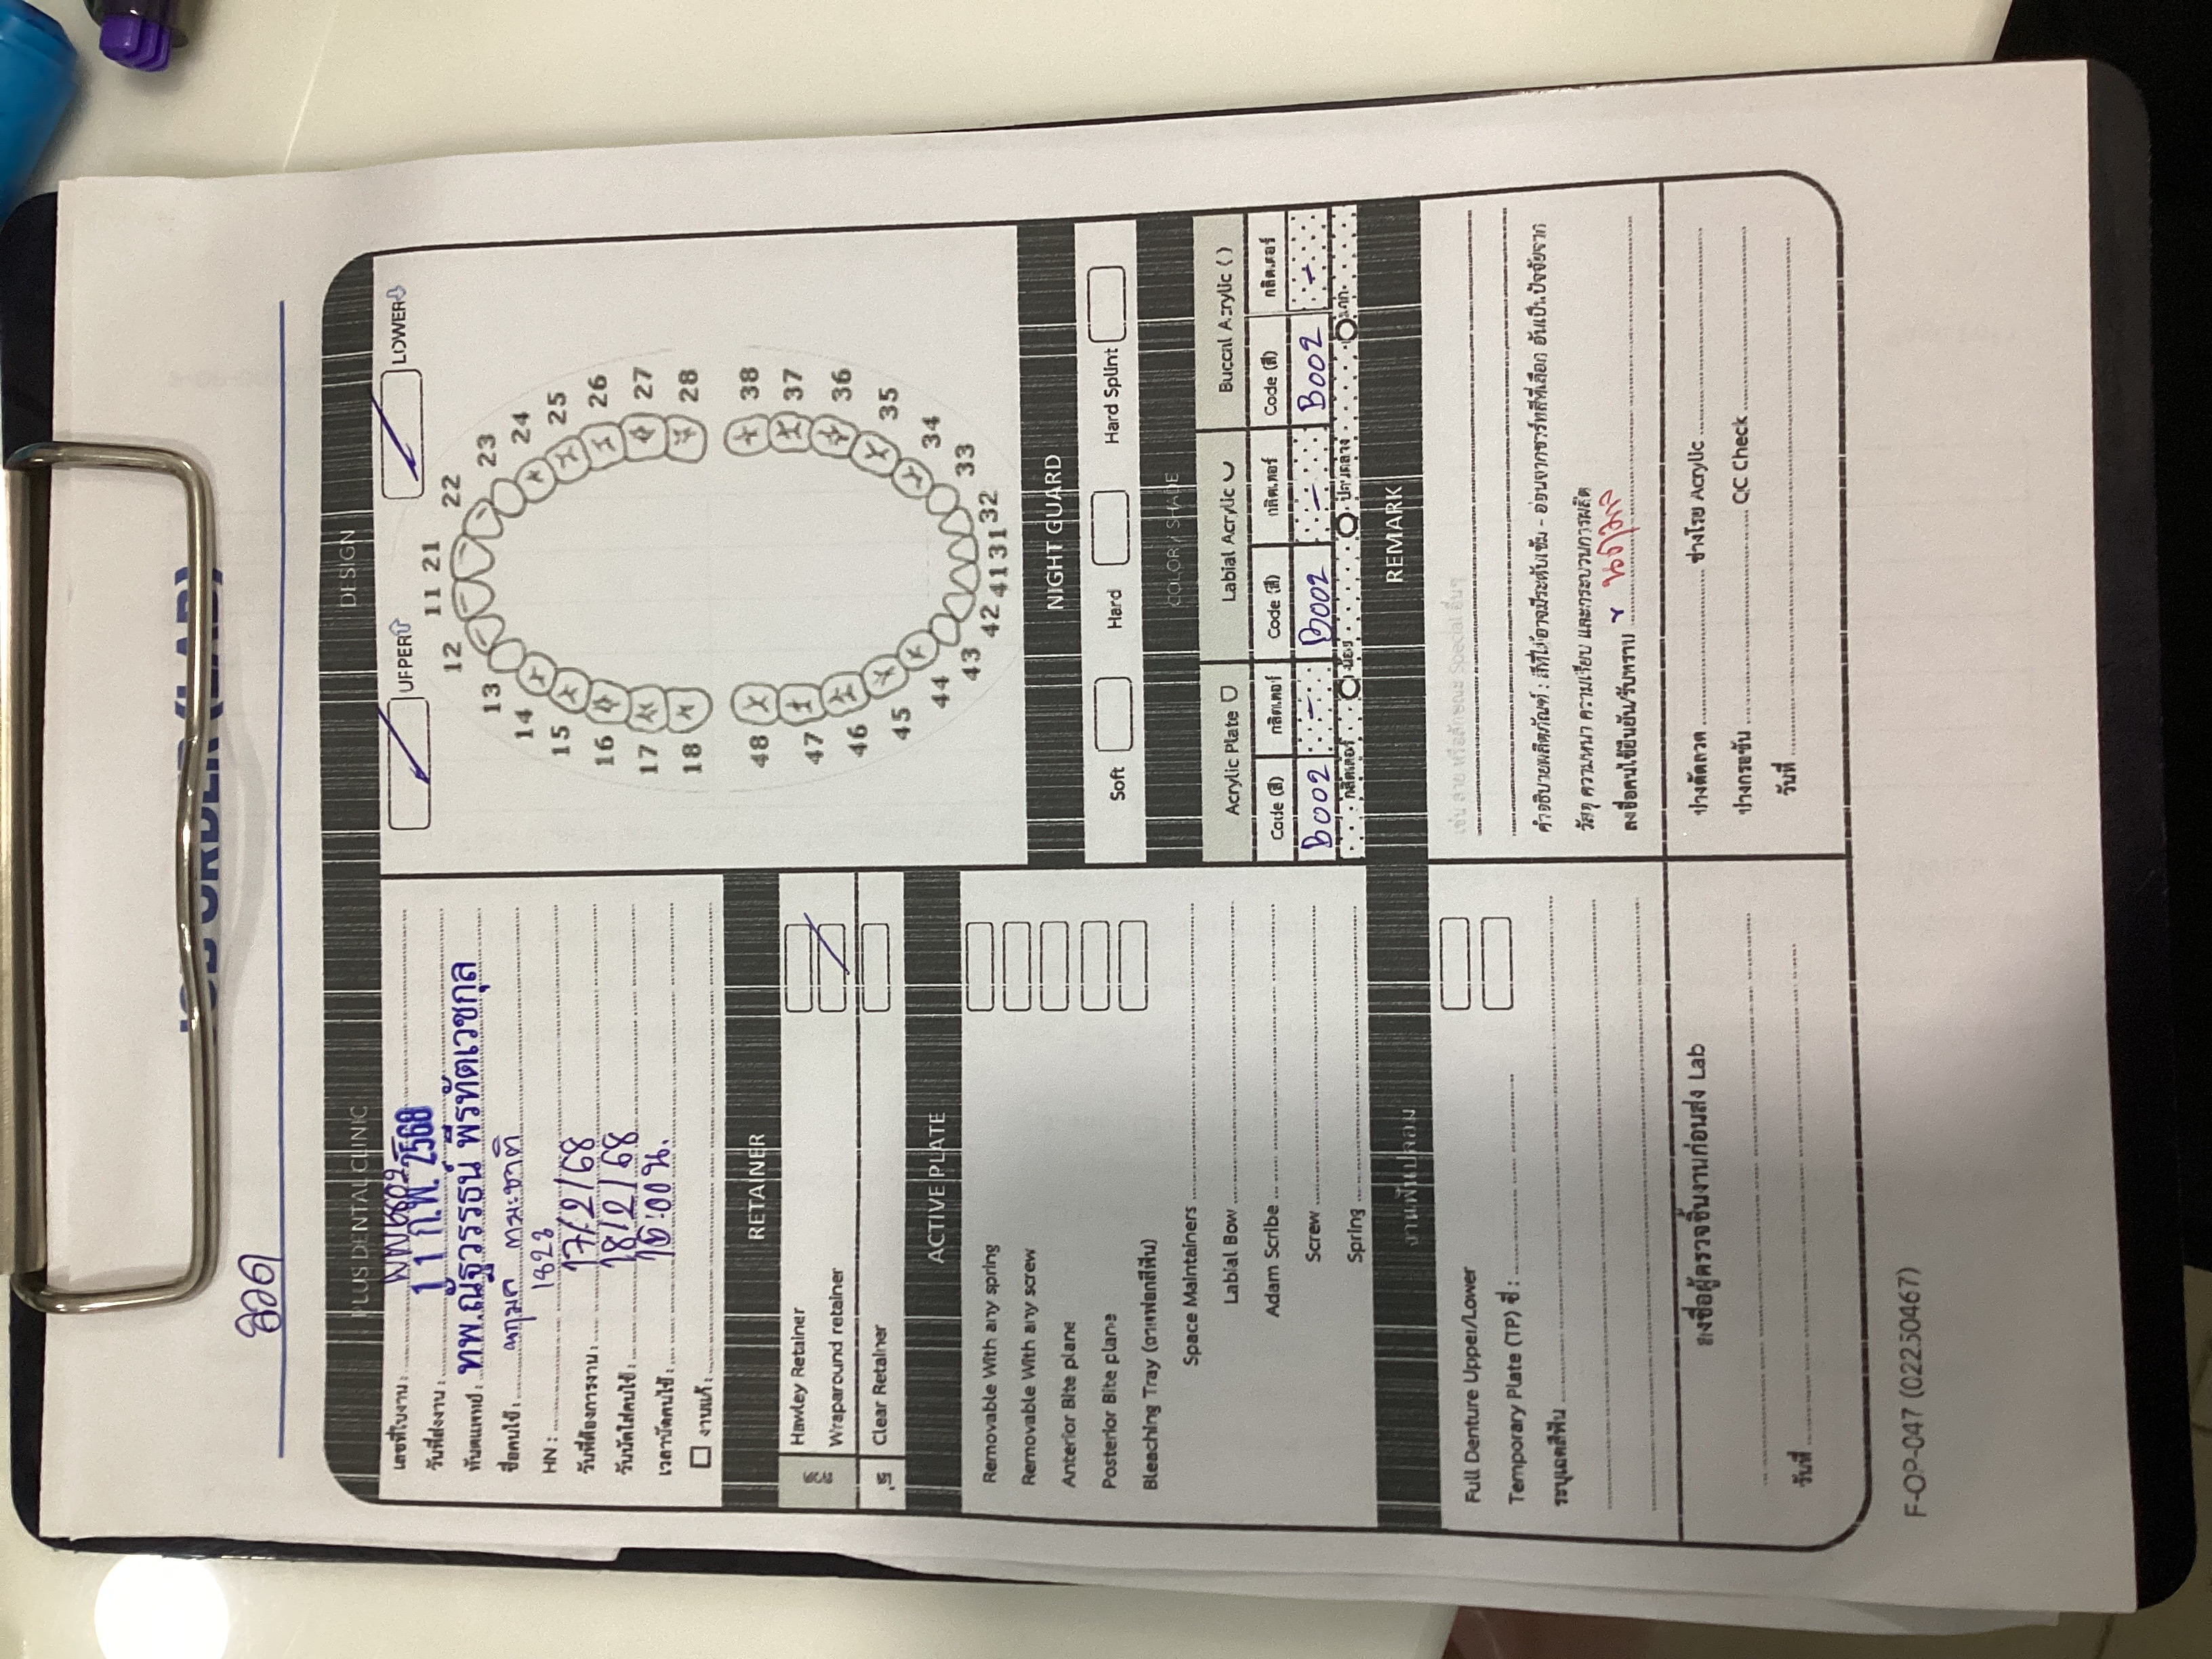 JOB ORDER (LAB)
ลวด
PLUS DENTAL CLINIC
เลขที่ใบงาน :
วันที่ส่งงาน : 11 ก.พ. 2568
ทันตแพทย์ : ทพ.ณัฐวรรธน์ พีรทัตเวชกุล
ชื่อคนไข้ : นฤมล
HN : 1823
วันที่ต้องการงาน : 17/2/68
วันนัดใส่คนไข้ : 18/2/68
เวลานัดคนไข้ : 16:00 น.
งานแก้ :
RETAINER
ลวด
Hawley Retainer
Wraparound retainer
ใส
Clear Retainer
ACTIVE PLATE
Removable With any spring
Removable With any screw
Anterior Bite plane
Posterior Bite plane
Bleaching Tray (ถาดฟอกสีฟัน)
Space Maintainers
Labial Bow
Adam Scribe
Screw
Spring
งานฟันปลอม
Full Denture Upper/Lower
Temporary Plate (TP) ซี่ :
ระบุเฉดสีฟัน
ลงชื่อผู้ตรวจชิ้นงานก่อนส่ง Lab
วันที่
DESIGN
UPPER LOWER
11 21
12 22
13 23
14 24
15 25
16 26
17 27
18 28
48 38
47 37
46 36
45 35
44 34
43 33
42 41 31 32
NIGHT GUARD
Soft Hard Hard Splint
COLOR / SHADE
Acrylic Plate Labial Acrylic Buccal Acrylic ( )
Code (สี) กลิตเตอร์ Code (สี) กลิตเตอร์ Code (สี) กลิตเตอร์
B002 - B002 - B002 -
กลิตเตอร์ น้อย ปานกลาง มาก
REMARK
เช่น ลาย หรือลักษณะ Special อื่นๆ
คำอธิบายผลิตภัณฑ์ : สีที่ได้อาจมีระดับเข้ม - อ่อนจากชาร์ทสีที่เลือก อันเป็นปัจจัยจาก
วัสดุ ความหนา ความเรียบ และกระบวนการผลิต
ลงชื่อคนไข้ยืนยัน/รับทราบ นฤมล
ช่างดัดลวด ช่างโรย Acrylic
ช่างกรอขัด QC Check
วันที่
F-OP-047 (02250467)